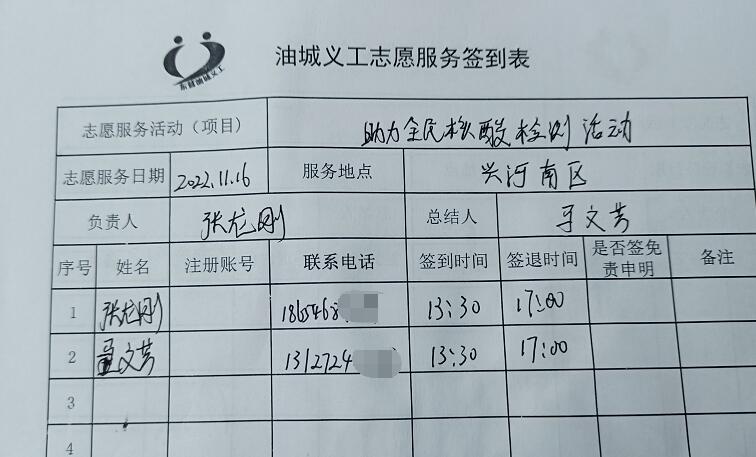 油城义工志愿服务签到表
东营油城义工
志愿服务活动（项目） 助力全民核酸检测活动
志愿服务日期 2022.11.16 服务地点 兴河南区
负责人 张龙刚 总结人 王文芳
序号 姓名 注册账号 联系电话 签到时间 签退时间 是否签免责申明 备注
1 张龙刚 1865468 13:30 17:00
2 王文芳 1312724 13:30 17:00
3
4